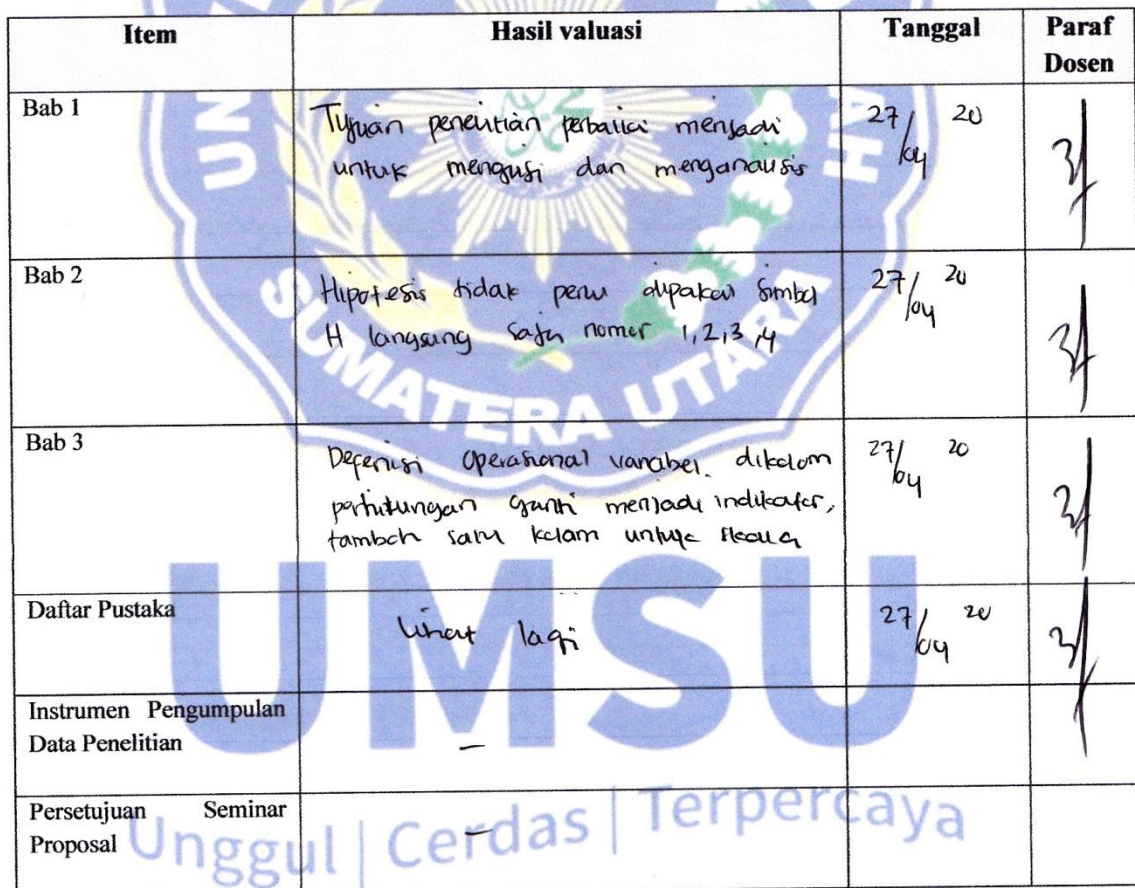 Item Hasil valuasi Tanggal Paraf
Dosen
Bab 1
Tujuan penelitian perbaiki menjadi
untuk menguji dan menganalisis
27/04 20
Bab 2
Hipotesis tidak perlu dipakai simbol
H langsung saja nomor 1,2,3,4
27/04 20
Bab 3
Defenisi operasional variabel. dikolom
perhitungan ganti menjadi indikator,
tambah satu kolom untuk skala
27/04 20
Daftar Pustaka
Lihat lagi
27/04 20
Instrumen Pengumpulan
Data Penelitian
–
Persetujuan Seminar
Proposal
–
SUMATERA UTARA
UMSU
Unggul | Cerdas | Terpercaya